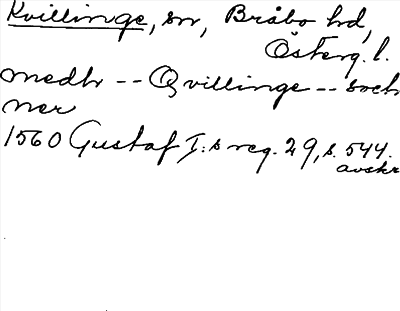 Kvillinge, sn, Bråbo hd,
Österg. l.
medh -- Qvillinge -- soch
ner
1560 Gustaf I:s reg. 29, s. 544.
avskr